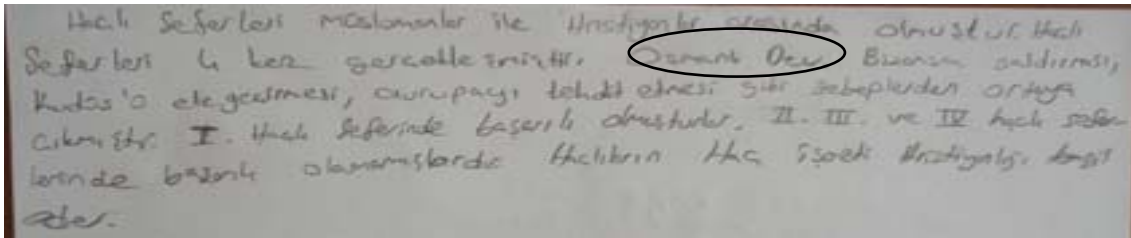 Haçlı Seferleri müslümanlar ile Hristiyanlar arasında olmuştur. Haçlı
Seferleri 4 kez gerçekleşmiştir. Osmanlı Dev Bizansa saldırması,
Kudüs'ü ele geçirmesi, avrupayı tehdit etmesi gibi sebeplerden ortaya
çıkmıştır. I. Haçlı Seferinde başarılı olmuşturlar. II. III. ve IV haçlı sefer
lerinde başarılı olamamışlardır Haçlıların Haç işareti Hristiyanlığı temsil
eder.